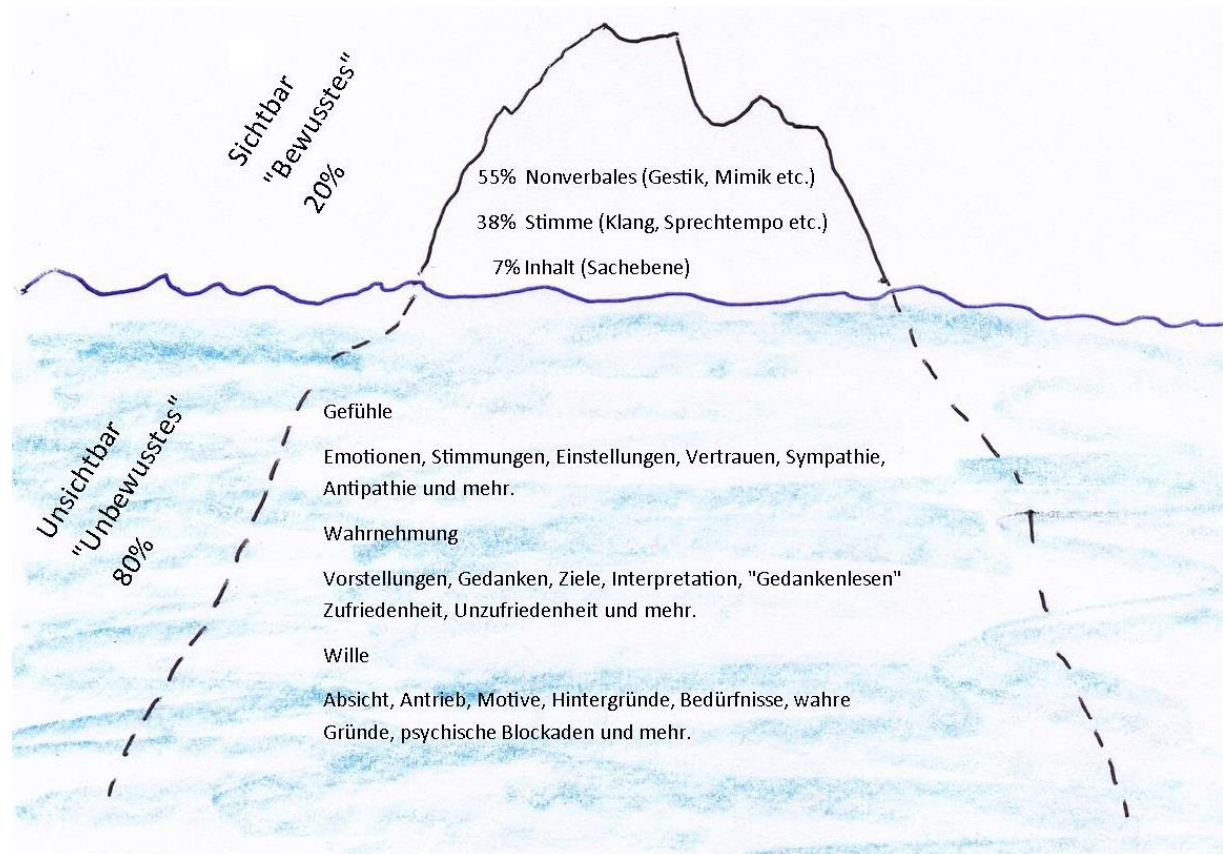 Sichtbar
"Bewusstes"
20%
55% Nonverbales (Gestik, Mimik etc.)
38% Stimme (Klang, Sprechtempo etc.)
7% Inhalt (Sachebene)
Unsichtbar
"Unbewusstes"
80%
Gefühle
Emotionen, Stimmungen, Einstellungen, Vertrauen, Sympathie,
Antipathie und mehr.
Wahrnehmung
Vorstellungen, Gedanken, Ziele, Interpretation, "Gedankenlesen"
Zufriedenheit, Unzufriedenheit und mehr.
Wille
Absicht, Antrieb, Motive, Hintergründe, Bedürfnisse, wahre
Gründe, psychische Blockaden und mehr.